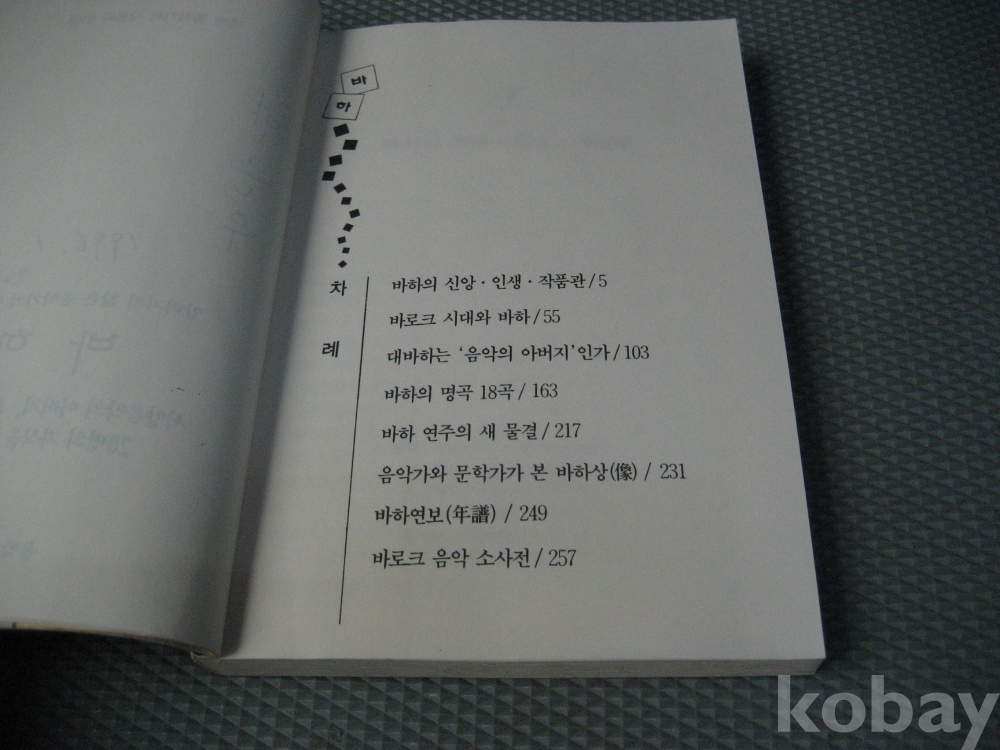 바
하
차
례
바하의 신앙·인생·작품관/5
바로크 시대와 바하/55
대바하는 ‘음악의 아버지’인가/103
바하의 명곡 18곡/163
바하 연주의 새 물결/217
음악가와 문학가가 본 바하상(像) / 231
바하연보(年譜) / 249
바로크 음악 소사전/257
kobay